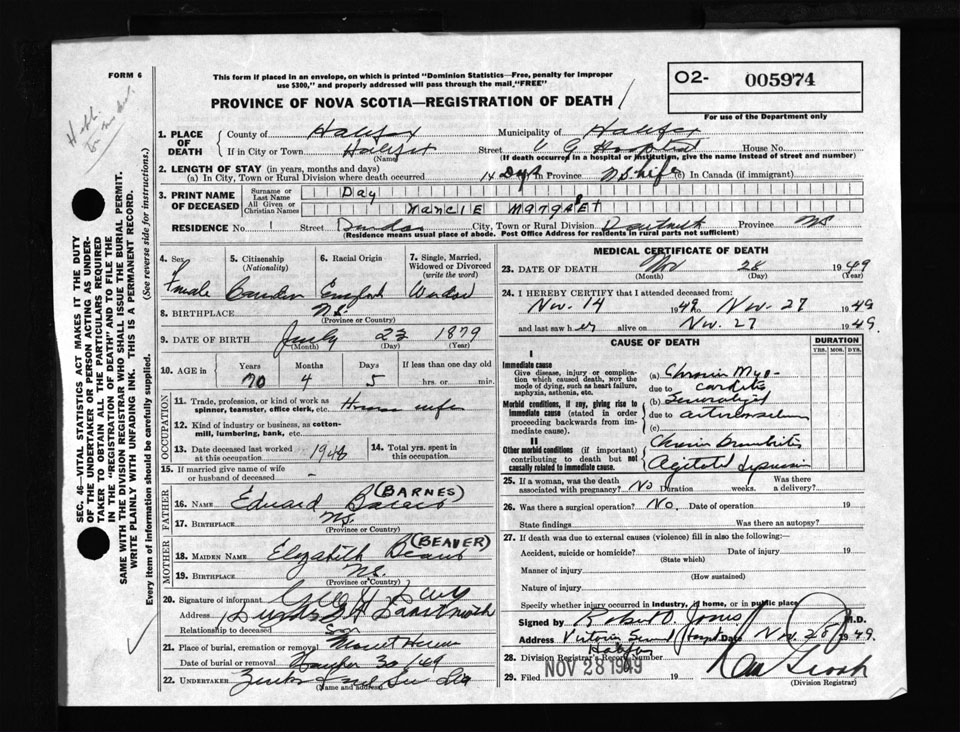 FORM 6
This form if placed in an envelope, on which is printed "Dominion Statistics—Free, penalty for improper
use $300," and properly addressed will pass through the mail, "FREE"
PROVINCE OF NOVA SCOTIA—REGISTRATION OF DEATH
O2- 005974
For use of the Department only
SEC. 46—VITAL STATISTICS ACT MAKES IT THE DUTY
OF THE UNDERTAKER OR PERSON ACTING AS UNDER-
TAKER TO OBTAIN ALL THE PARTICULARS REQUIRED
IN THE "REGISTRATION OF DEATH" AND TO FILE THE
SAME WITH THE DIVISION REGISTRAR WHO SHALL ISSUE THE BURIAL PERMIT.
WRITE PLAINLY WITH UNFADING INK. THIS IS A PERMANENT RECORD.
Every item of information should be carefully supplied. (See reverse side for instructions.)
1. PLACE OF DEATH County of Halifax Municipality of Halifax
If in City or Town Halifax Street V G Hospital House No.
(Name) (If death occurred in a hospital or institution, give the name instead of street and number)
2. LENGTH OF STAY (in years, months and days)
(a) In City, Town or Rural Division where death occurred 14 Dys Province NS life (c) In Canada (if immigrant)
3. PRINT NAME OF DECEASED Surname or Last Name Day
All Given or Christian Names Nancie Margaret
RESIDENCE No. Street Dundas City, Town or Rural Division Dartmouth Province NS
(Residence means usual place of abode. Post Office Address for residents in rural parts not sufficient)
4. Sex Female
5. Citizenship (Nationality) Canadian
6. Racial Origin England
7. Single, Married, Widowed or Divorced (write the word) Widow
8. BIRTHPLACE NS.
(Province or Country)
9. DATE OF BIRTH July 23 1879
(Month) (Day) (Year)
10. AGE Years 70 Months 4 Days 5 If less than one day old hrs. or min.
OCCUPATION
11. Trade, profession, or kind of work as
spinner, teamster, office clerk, etc. House wife
12. Kind of industry or business, as cotton-
mill, lumbering, bank, etc.
13. Date deceased last worked at this occupation 1948
14. Total yrs. spent in this occupation
15. If married give name of wife
or husband of deceased
FATHER
16. NAME Edward (BARNES)
17. BIRTHPLACE NS.
(Province or Country)
MOTHER
18. MAIDEN NAME Elizabeth (BEAVER)
19. BIRTHPLACE NS.
(Province or Country)
20. Signature of informant
Address Dundas St Dartmouth
Relationship to deceased Son
21. Place of burial, cremation or removal Mount Hermon
Date of burial or removal November 30/49
22. UNDERTAKER
(Name and address)
MEDICAL CERTIFICATE OF DEATH
23. DATE OF DEATH Nov 28 1949
(Month) (Day) (Year)
24. I HEREBY CERTIFY that I attended deceased from:
Nov. 14 1949 to Nov. 27 1949
and last saw her alive on Nov. 27 1949.
CAUSE OF DEATH
DURATION
YRS. MOS. DYS.
I
Immediate cause
Give disease, injury or complica-
tion which caused death, NOT the
mode of dying, such as heart failure,
asphyxia, asthenia, etc.
(a) Chronic Myo-
due to carditis
Morbid conditions, if any, giving rise to
immediate cause (stated in order
proceeding backwards from im-
mediate cause).
(b) Generalized
due to arteriosclerosis
(c)
II
Other morbid conditions (if important)
contributing to death but not
causally related to immediate cause.
Chronic Bronchitis
Agitated depression
25. If a woman, was the death
associated with pregnancy? No Duration weeks. Was there a delivery?
26. Was there a surgical operation? No. Date of operation 19
State findings Was there an autopsy?
27. If death was due to external causes (violence) fill in also the following:
Accident, suicide or homicide? Date of injury 19
(State which)
Manner of injury
(How sustained)
Nature of injury
Specify whether injury occurred in industry, in home, or in public place
Signed by Robert O. Jones M.D.
Address Victoria General Hospital Date Nov. 28 1949.
Halifax
28. Division Registrar's Record Number
29. Filed NOV 28 1949 19
(Division Registrar)